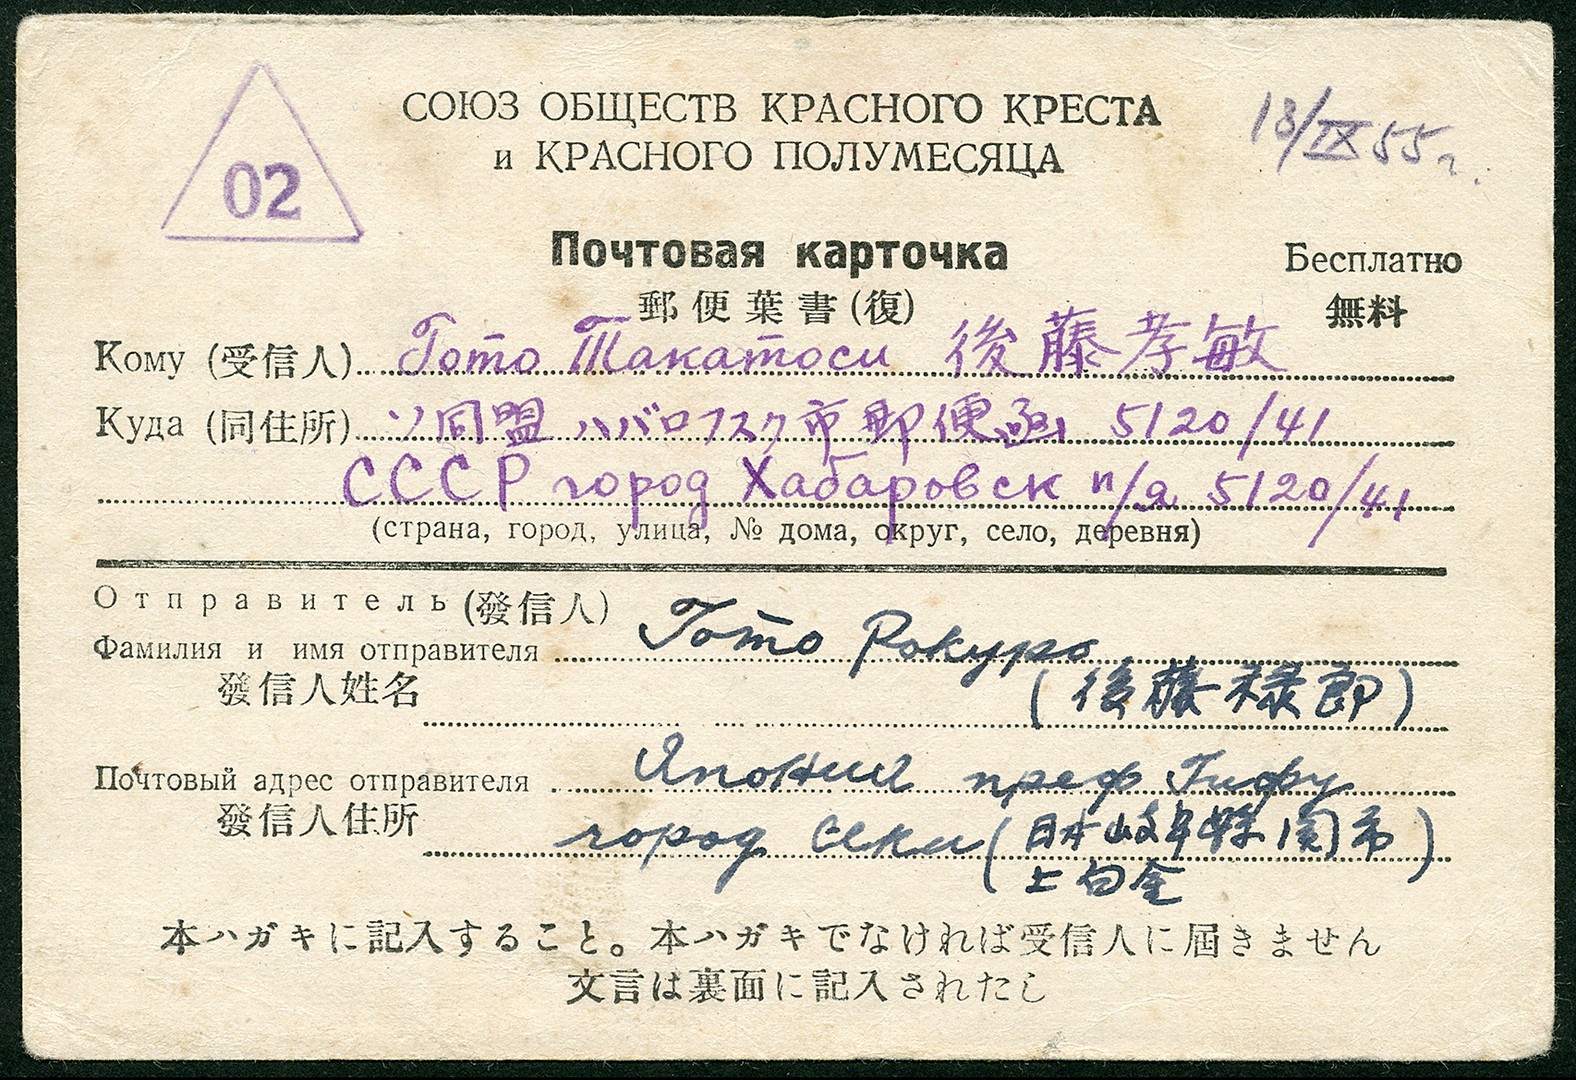 СОЮЗ ОБЩЕСТВ КРАСНОГО КРЕСТА
и КРАСНОГО ПОЛУМЕСЯЦА
18/IX 55г.
02
Почтовая карточка
Бесплатно
郵便葉書(復)
無料
Кому (受信人) Гото Такатоси 後藤孝敏
Куда (同住所) ソ同盟 ハバロフスク市郵便函 5120/41
СССР город Хабаровск п/я 5120/41
(страна, город, улица, № дома, округ, село, деревня)
Отправитель (發信人)
Фамилия и имя отправителя Гото Рокуро
發信人姓名 (後藤禄郎)
Почтовый адрес отправителя Япония преф Гифу
發信人住所 город Секи (日本岐阜縣関市)
上白金
本ハガキに記入すること。本ハガキでなければ受信人に届きません
文言は裏面に記入されたし